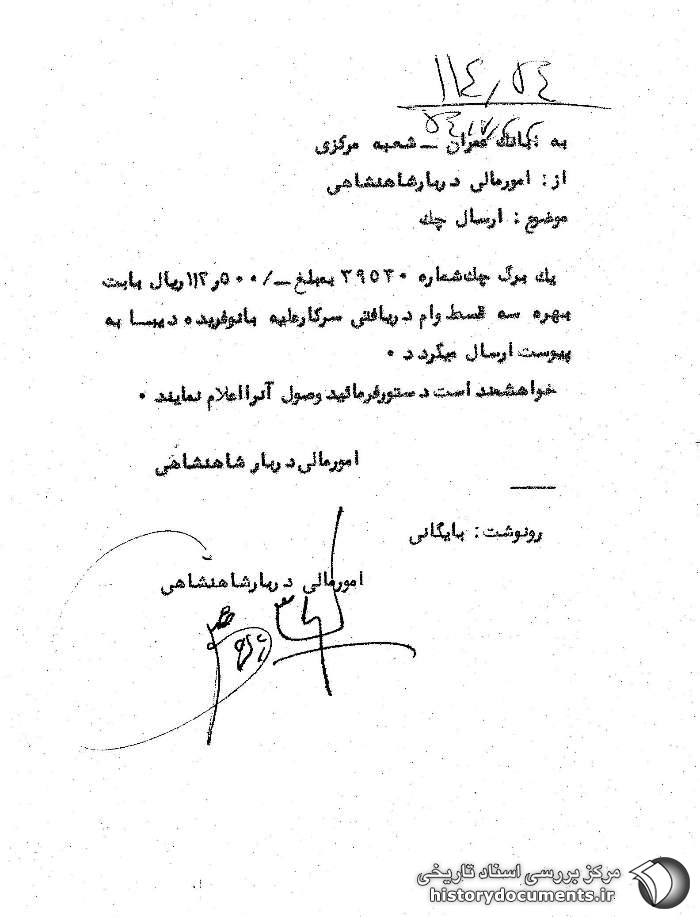 ۱۱۴٫۵۴
به : بانك عمران ــ شعبه مركزی
از : امورمالی دربارشاهنشاهی
موضوع : ارسال چك
يك برگ چك شماره ۳۹۵۳۰ بمبلغ ــ/۱۱۲ر۵۰۰ ريال بابت
بهره سه قسط وام دريافتی سركارعليه بانوفريده ديبا به
پيوست ارسال ميگردد ۰
خواهشمند است دستورفرمائيد وصول آنرااعلام نمايند ۰
امورمالی دربار شاهنشاهی
رونوشت : بايگانی
امورمالی دربارشاهنشاهی
مرکز بررسی اسناد تاریخی
historydocuments.ir